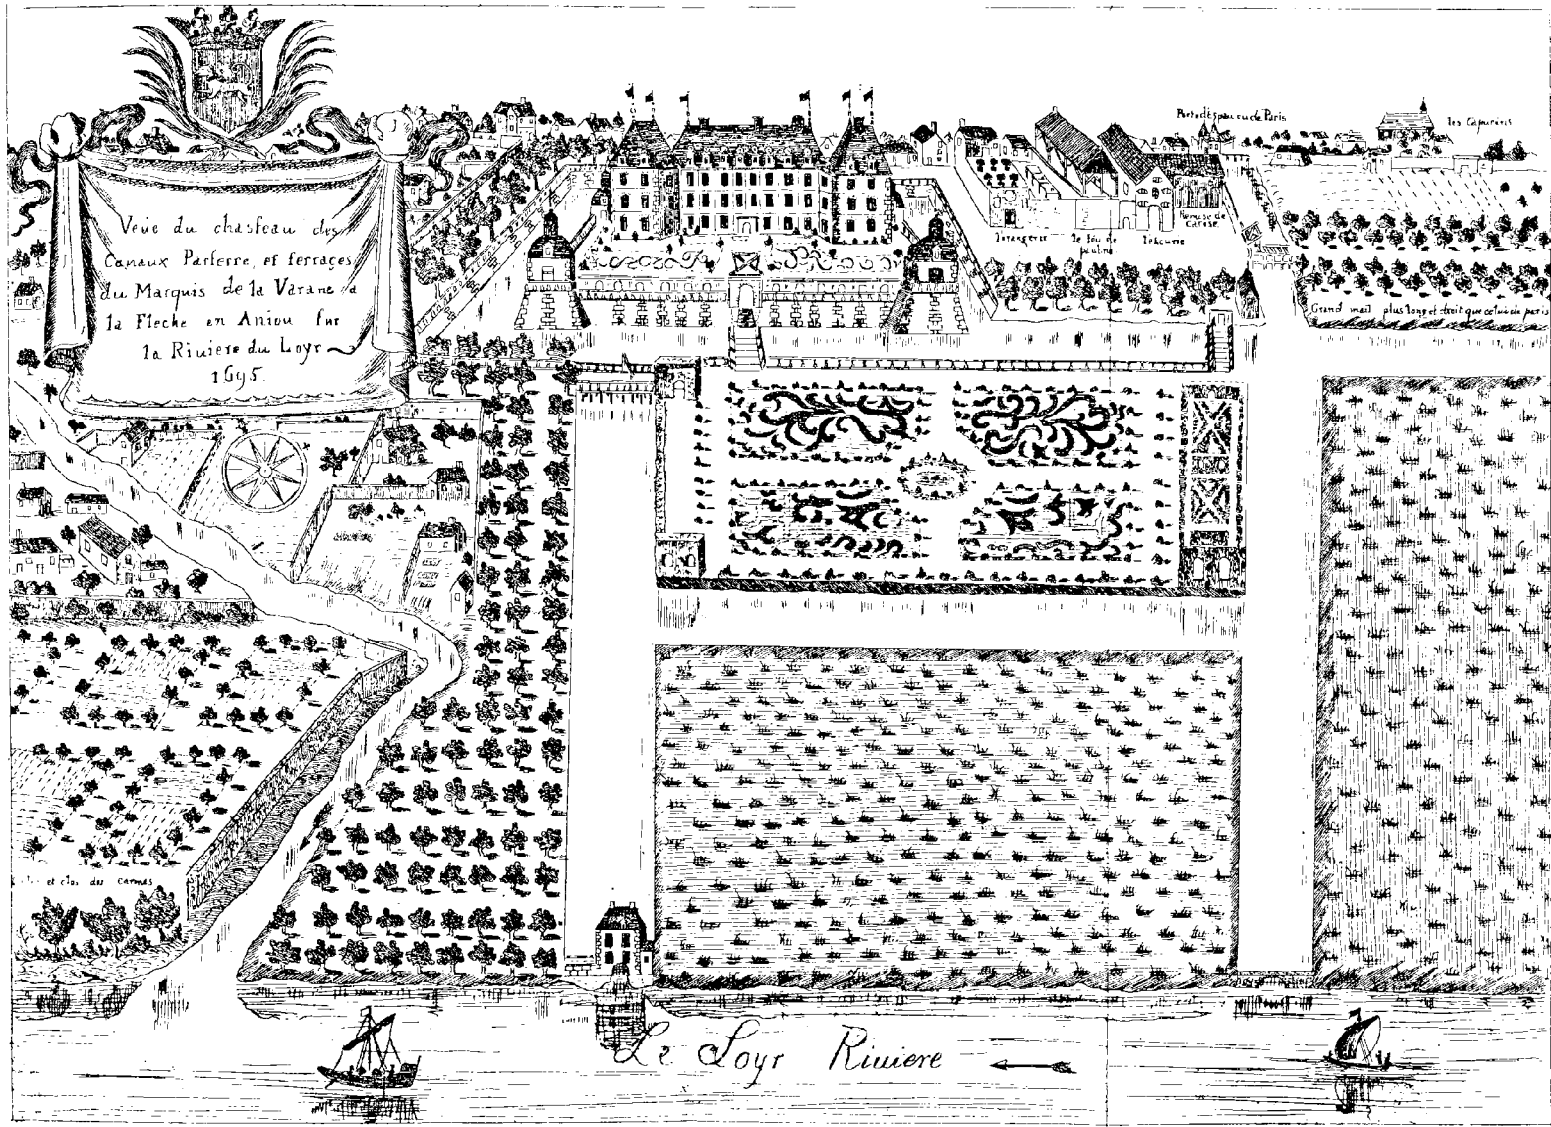 Veüe du chasteau des
Canaux Parterre, et terraçes
du Marquis de la Varane a
la Fleche en Aniou sur
la Riviere du Loyr
1695.
les Capucins
Remise de
carosse
lorangerie
le ieu de
paulme
lescurie
Grand mail plus long et droit que celui de paris
et clos des carmes
Le Loyr Riviere